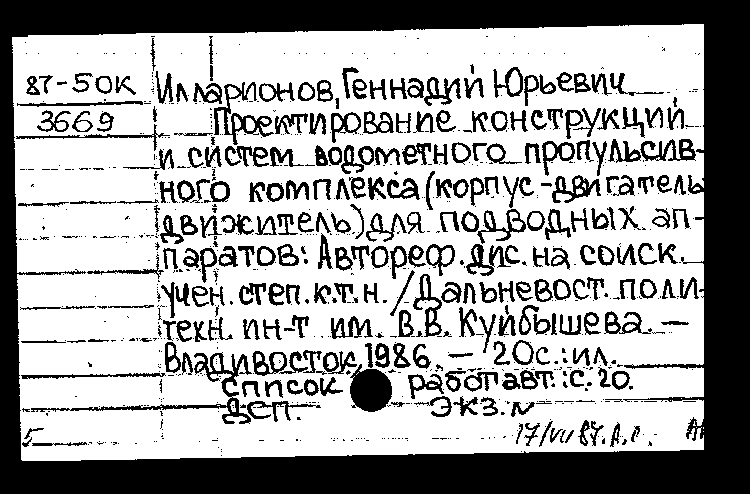 87-50К Илларионов, Геннадий Юрьевич.
3669 Проектирование конструкций
и систем водометного пропульсив-
ного комплекса (корпус-двигатель
движитель) для подводных ап-
паратов: Автореф. дис. на соиск.
учен. степ. к.т.н. / Дальневост. поли-
техн. ин-т им. В.В. Куйбышева. —
Владивосток, 1986. — 20с.: ил.
список работ авт.: с. 20.
ДСП. ЭКЗ. N
5 17/VII 87.